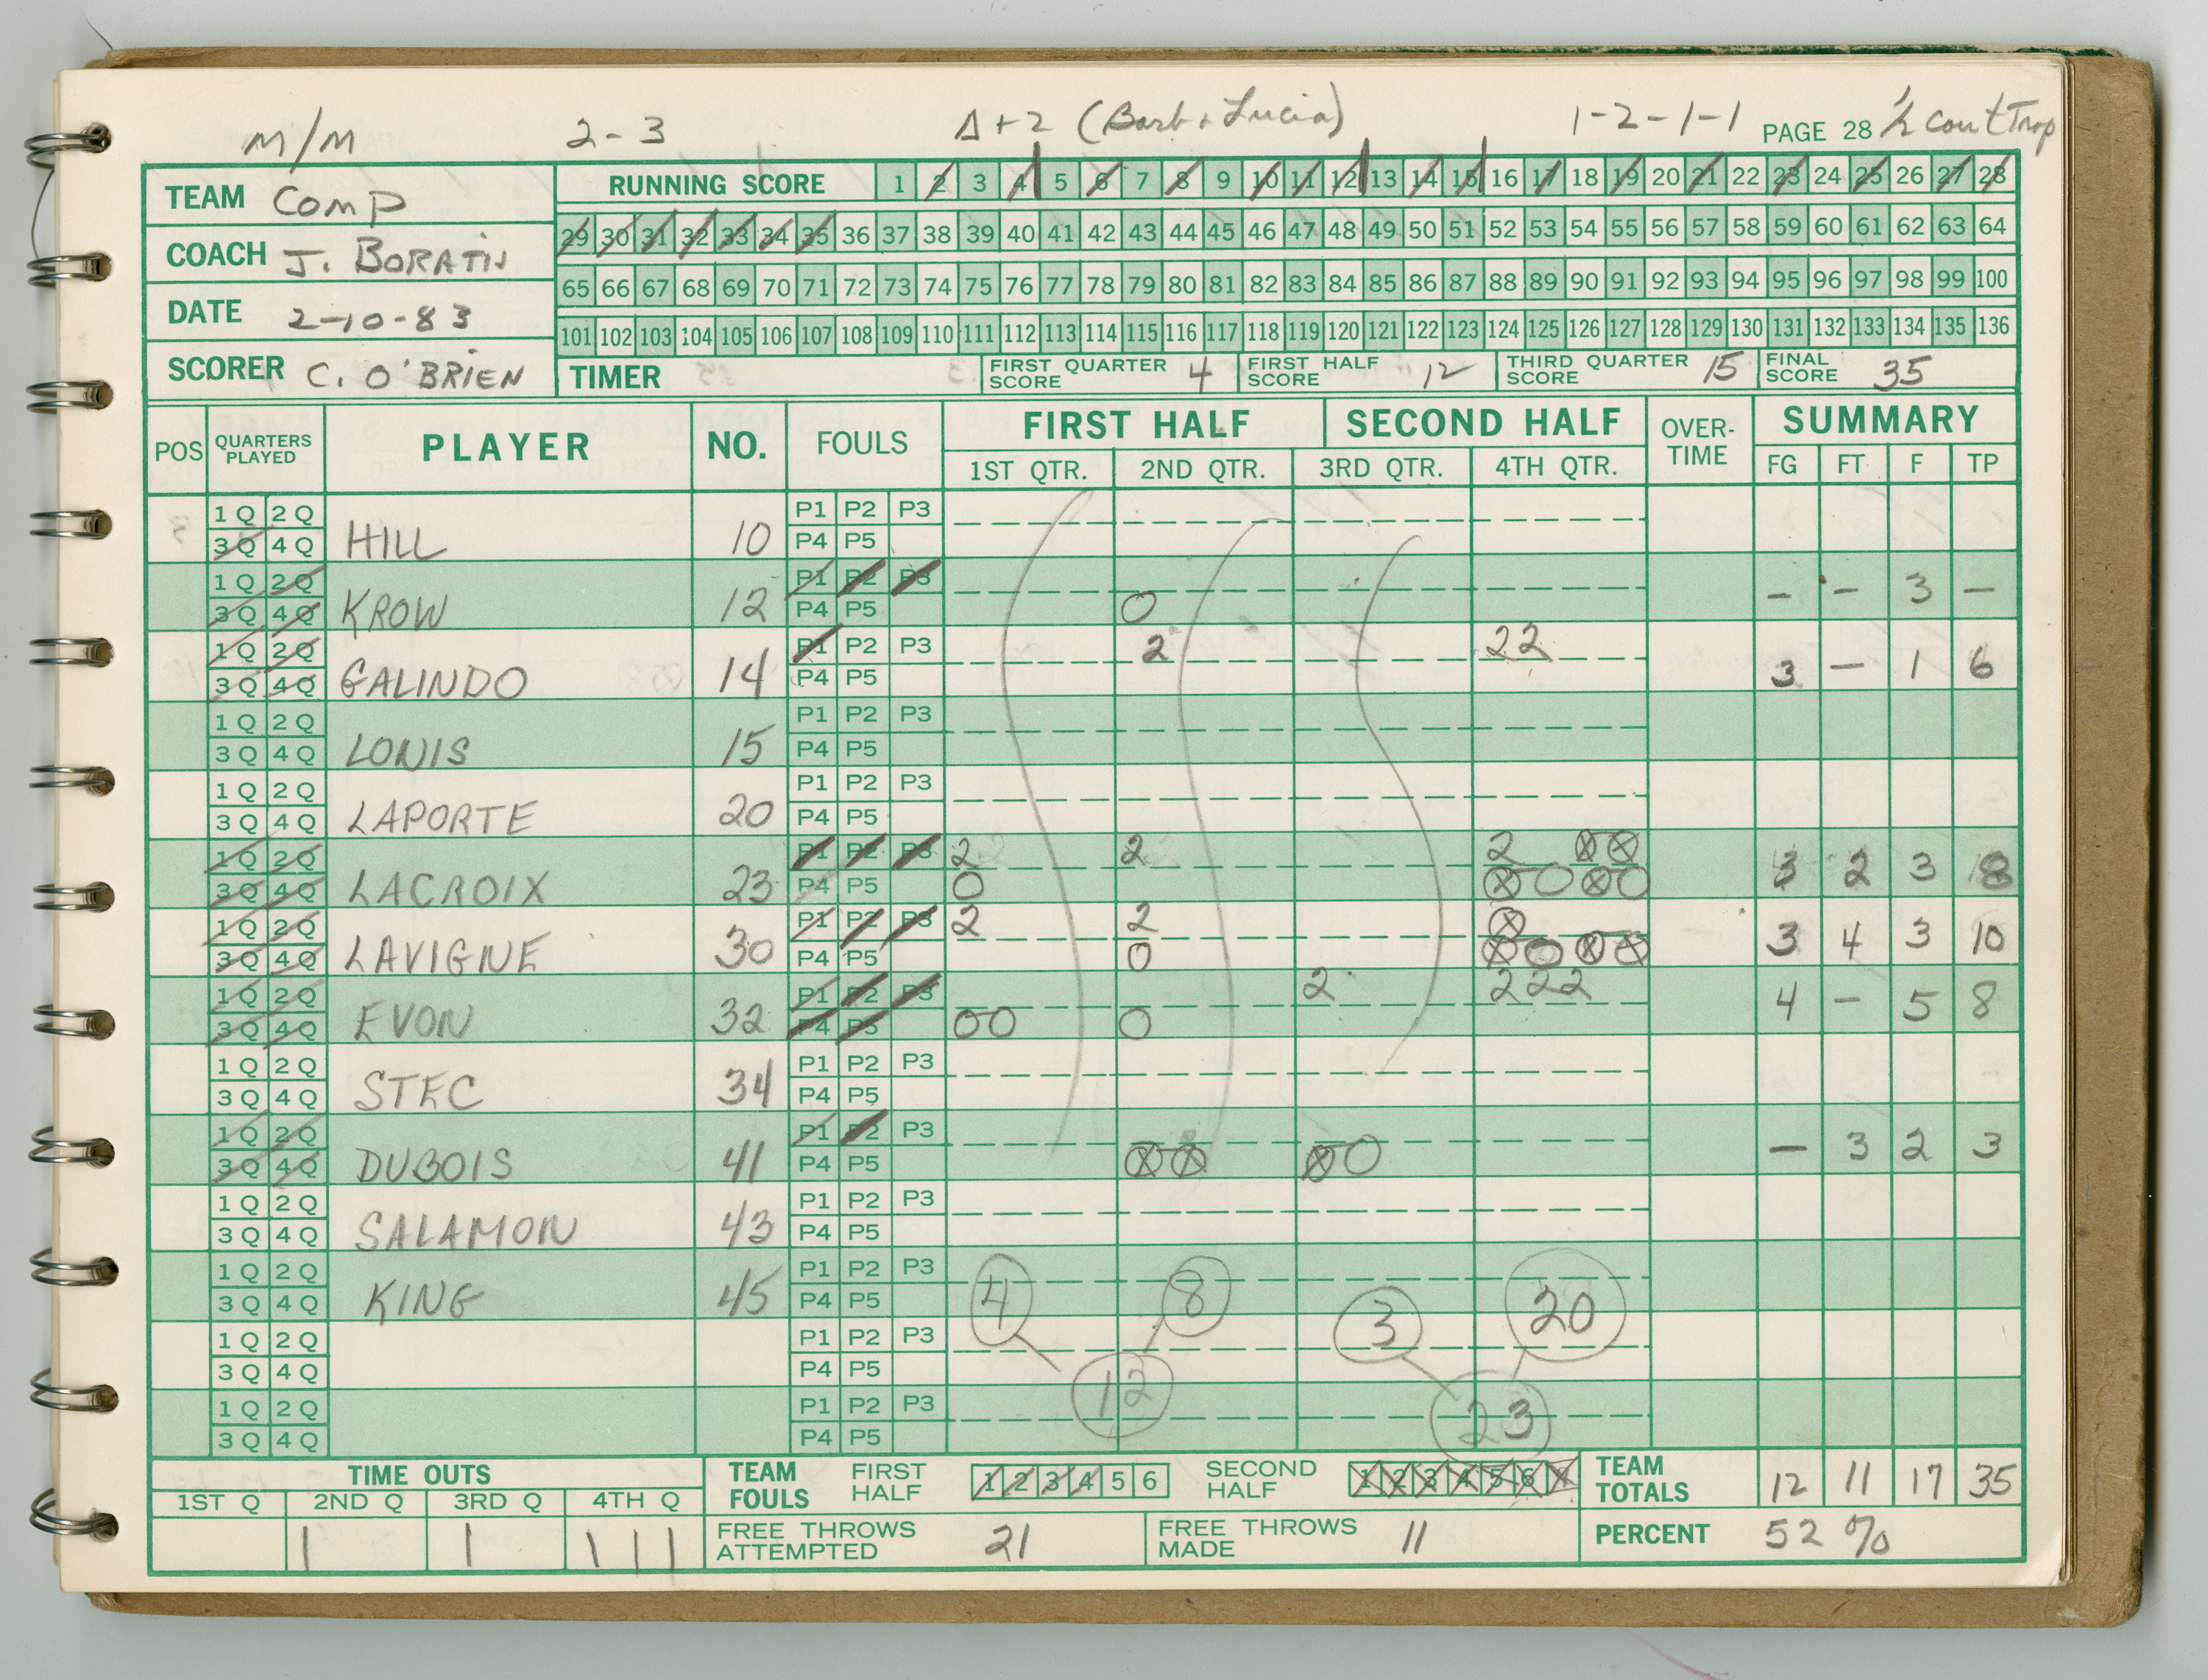 M/M 2-3 Δ+2 (Barb + Lucia) 1-2-1-1 PAGE 28 ½ court Trap
TEAM Comp
COACH J. BORATIN
DATE 2-10-83
SCORER C. O'BRIEN
RUNNING SCORE 1 2 3 4 5 6 7 8 9 10 11 12 13 14 15 16 17 18 19 20 21 22 23 24 25 26 27 28
29 30 31 32 33 34 35 36 37 38 39 40 41 42 43 44 45 46 47 48 49 50 51 52 53 54 55 56 57 58 59 60 61 62 63 64
65 66 67 68 69 70 71 72 73 74 75 76 77 78 79 80 81 82 83 84 85 86 87 88 89 90 91 92 93 94 95 96 97 98 99 100
101 102 103 104 105 106 107 108 109 110 111 112 113 114 115 116 117 118 119 120 121 122 123 124 125 126 127 128 129 130 131 132 133 134 135 136
TIMER FIRST QUARTER SCORE 4 FIRST HALF SCORE 12 THIRD QUARTER SCORE 15 FINAL SCORE 35
POS QUARTERS PLAYED PLAYER NO. FOULS FIRST HALF SECOND HALF OVER-TIME SUMMARY
1ST QTR. 2ND QTR. 3RD QTR. 4TH QTR. FG FT F TP
1 Q 2 Q P1 P2 P3
3 Q 4 Q HILL 10 P4 P5
1 Q 2 Q P1 P2 P3 - - 3 -
3 Q 4 Q KROW 12 P4 P5 0
1 Q 2 Q P1 P2 P3 2 22
3 Q 4 Q GALINDO 14 P4 P5 3 - 1 6
1 Q 2 Q P1 P2 P3
3 Q 4 Q LONIS 15 P4 P5
1 Q 2 Q P1 P2 P3
3 Q 4 Q LAPORTE 20 P4 P5
1 Q 2 Q P1 P2 P3 2 2 2 ⊗⊗
3 Q 4 Q LACROIX 23 P4 P5 0 ⊗0 ⊗0 3 2 3 8
1 Q 2 Q P1 P2 P3 2 2 ⊗
3 Q 4 Q LAVIGNE 30 P4 P5 0 ⊗0 ⊗⊗ 3 4 3 10
1 Q 2 Q P1 P2 P3 2 222
3 Q 4 Q EVON 32 P4 P5 00 0 4 - 5 8
1 Q 2 Q P1 P2 P3
3 Q 4 Q STEC 34 P4 P5
1 Q 2 Q P1 P2 P3
3 Q 4 Q DUBOIS 41 P4 P5 ⊗⊗ ⊗0 - 3 2 3
1 Q 2 Q P1 P2 P3
3 Q 4 Q SALAMON 43 P4 P5
1 Q 2 Q P1 P2 P3
3 Q 4 Q KING 45 P4 P5 4 8 3 20
1 Q 2 Q P1 P2 P3
3 Q 4 Q P4 P5
1 Q 2 Q P1 P2 P3 12 23
3 Q 4 Q P4 P5
TIME OUTS TEAM FOULS FIRST HALF 1 2 3 4 5 6 SECOND HALF 1 2 3 4 5 6 7 TEAM TOTALS 12 11 17 35
1ST Q 2ND Q 3RD Q 4TH Q
| | | | | FREE THROWS ATTEMPTED 21 FREE THROWS MADE 11 PERCENT 52 %